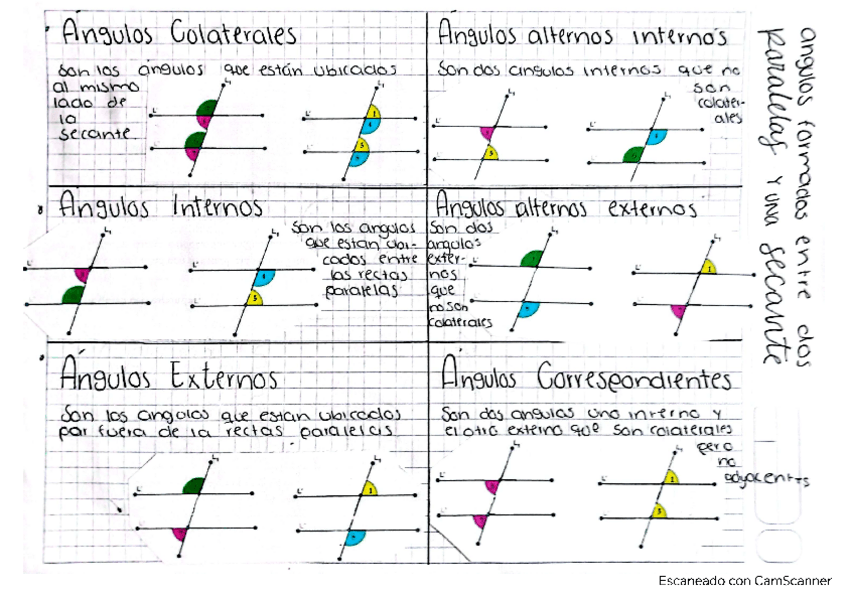 Ángulos Colaterales
Son los ángulos que están ubicados
al mismo
lado de
la
secante
Ángulos alternos internos
Son dos angulos internos que no
son
colater-
ales
Angulos Internos
Son los angulos
que estan ubi-
cados entre
las rectas
paralelas
Angulos alternos externos
Son dos
angulos
exter-
nos
que
no son
colaterales
Ángulos Externos
Son los angulos que estan ubicados
por fuera de la rectas paralelas
Ángulos Correspondientes
Son dos angulos uno interno y
el otro externo que son colaterales
pero
no
adyacentes
angulos formados entre dos
paralelas y una secante
Escaneado con CamScanner